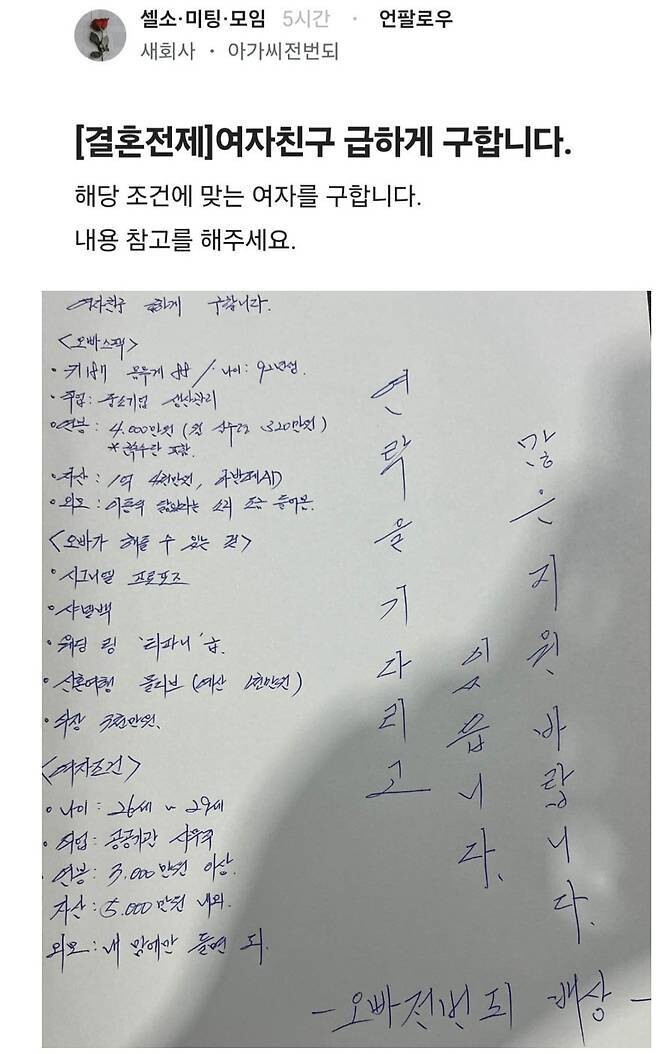 셀소·미팅·모임 5시간 · 언팔로우
새회사 · 아가씨전번되
[결혼전제]여자친구 급하게 구합니다.
해당 조건에 맞는 여자를 구합니다.
내용 참고를 해주세요.
여자친구 급하게 구합니다.
<오빠스펙>
• 키 몸무게 / 나이: 92년생.
• 직업: 중소기업 생산관리
• 연봉: 4.000만원 (월 실수령 320만원)
* 포함.
• 자산: 1억 4천만원,
• 외모: 이동욱 닮았다는 소리 조금 들어봄.
<오빠가 해줄 수 있는 것>
• 시그니엘 프로포즈
• 샤넬백
• 웨딩 링 '티파니' 급.
• 신혼여행 몰디브 (예산 1천만원)
• 5천만원.
<여자조건>
• 나이: 26세 ~ 29세
• 직업: 공공기관 사무직
• 연봉: 3.000만원 이상.
자산: 5.000만원 내외.
외모: 내 맘에만 들면 되.
연락을 기다리고
있읍니다.
많은 지원 바랍니다.
- 오빠전번되 배상 -